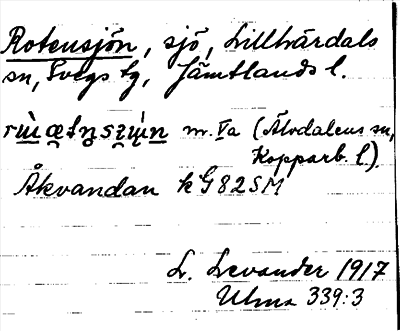 Rotensjön, sjö, Lillhärdals
sn, Svegs tg, Jämtlands l.
m. Va (Älvdalens sn,
Kopparb. l).
Åkvandan k G82SM
L. Levander 1917
Ulma 339:3